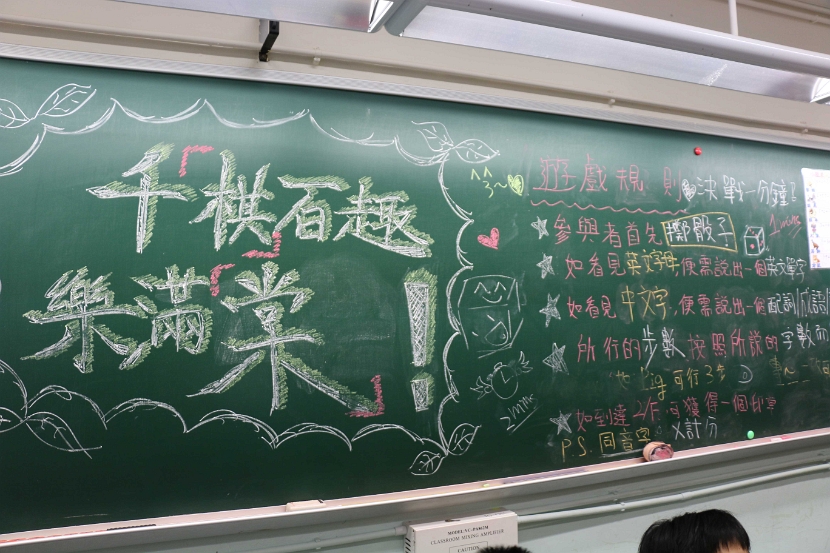 「千棋」百趣
「樂滿棠」!
遊戲規則 決戰一分鐘!
1 mins
參與者首先擲骰子
如看見英文字母,便需說出一個英文單字
如看見中文字,便需說出一個配詞/成語
所行的步數按照所說的字數而
big 可行3步
2 mins
如到達 可獲得一個印章
P.S. 同音字 X計分
MODEL YC-PA03M
CLASSROOM MIXING AMPLIFIER
CAUTION